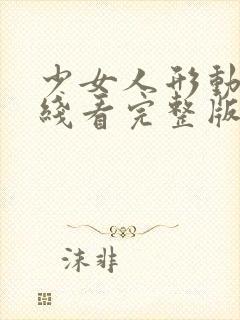 少女人形動
綫看完整版
沫非